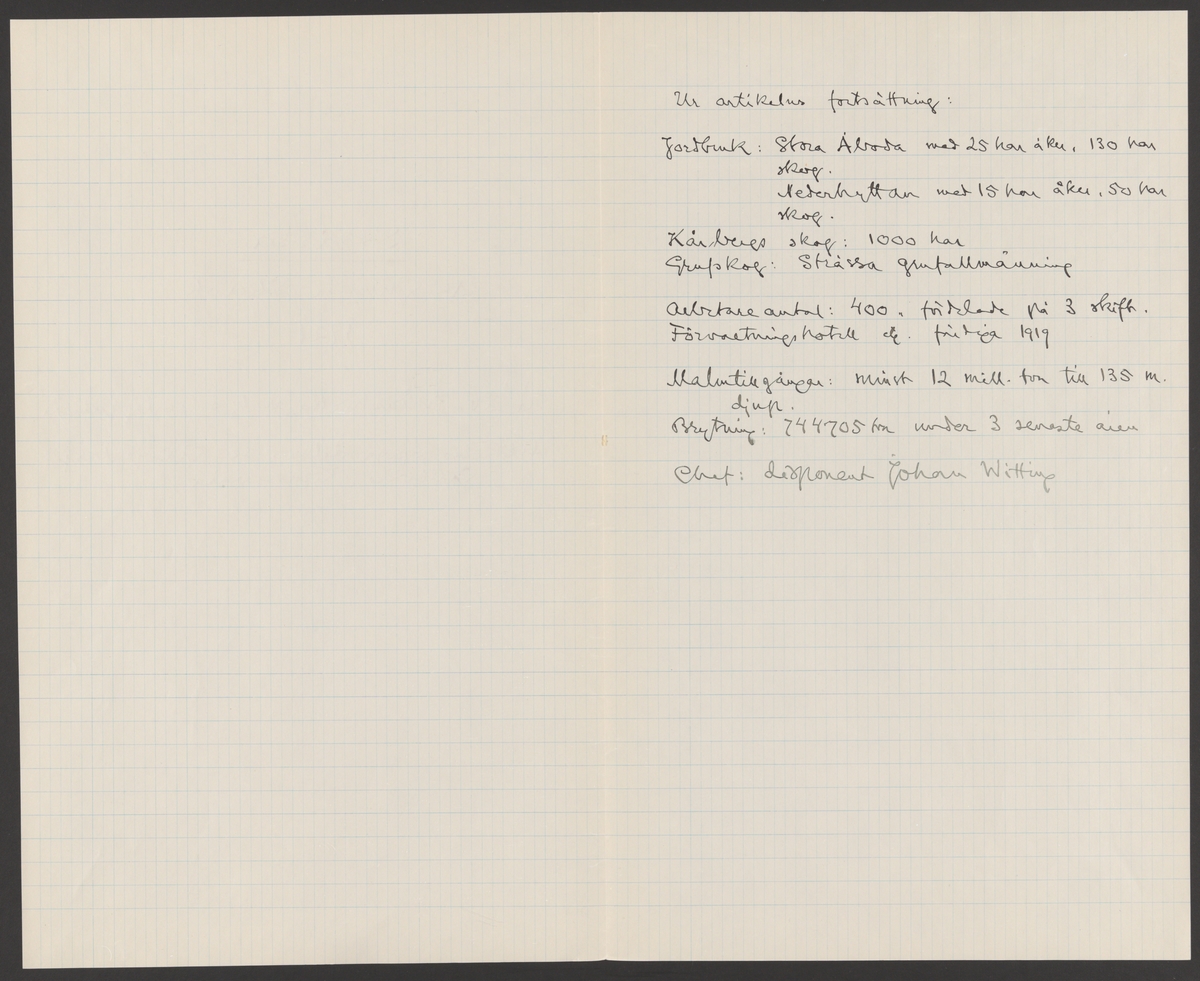 Ur artikelns fortsättning:
Jordbruk: Stora Åboda med 25 har åker, 130 har
skog.
Nederhyttan med 15 har åker, 50 har
skog.
Kårbergs skog: 1000 har
Grufskog: Stråssa grufallmänning
Arbetareantal: 400, fördelade på 3 skift.
Förvaltningshotell färdiga 1919
Malmtillgångar: minst 12 mill. ton till 135 m.
djup.
Brytning: 744705 ton under 3 senaste åren
Chef: disponent Johan Witting